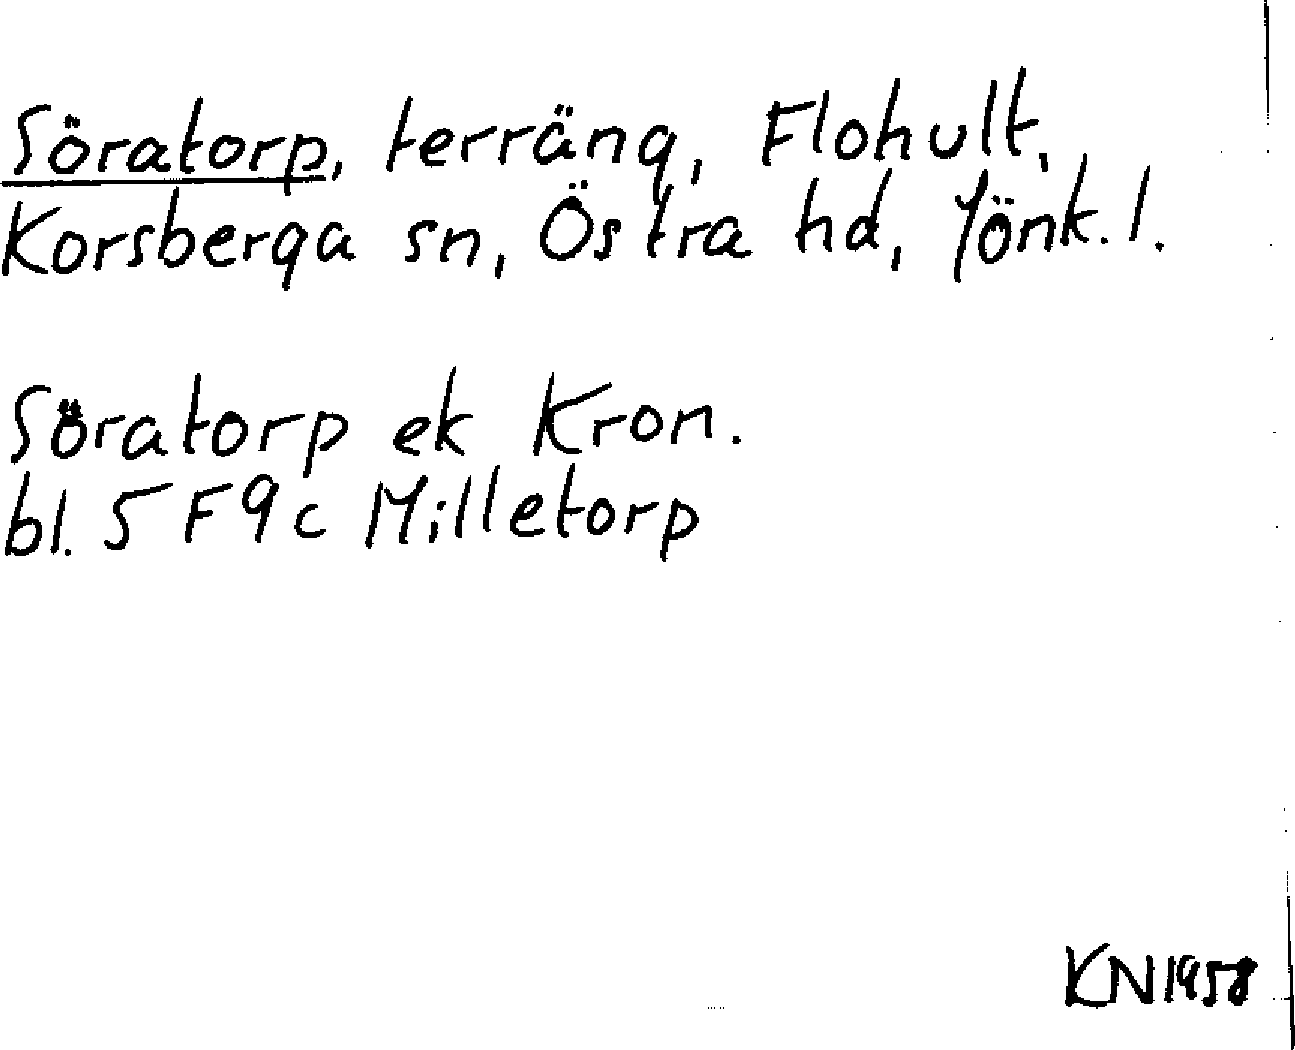 Söratorp, terräng, Flohult,
Korsberga sn, Östra hd, Jönk. l.
Söratorp ek Kron.
bl. 5 F 9 c Milletorp
KN 1958